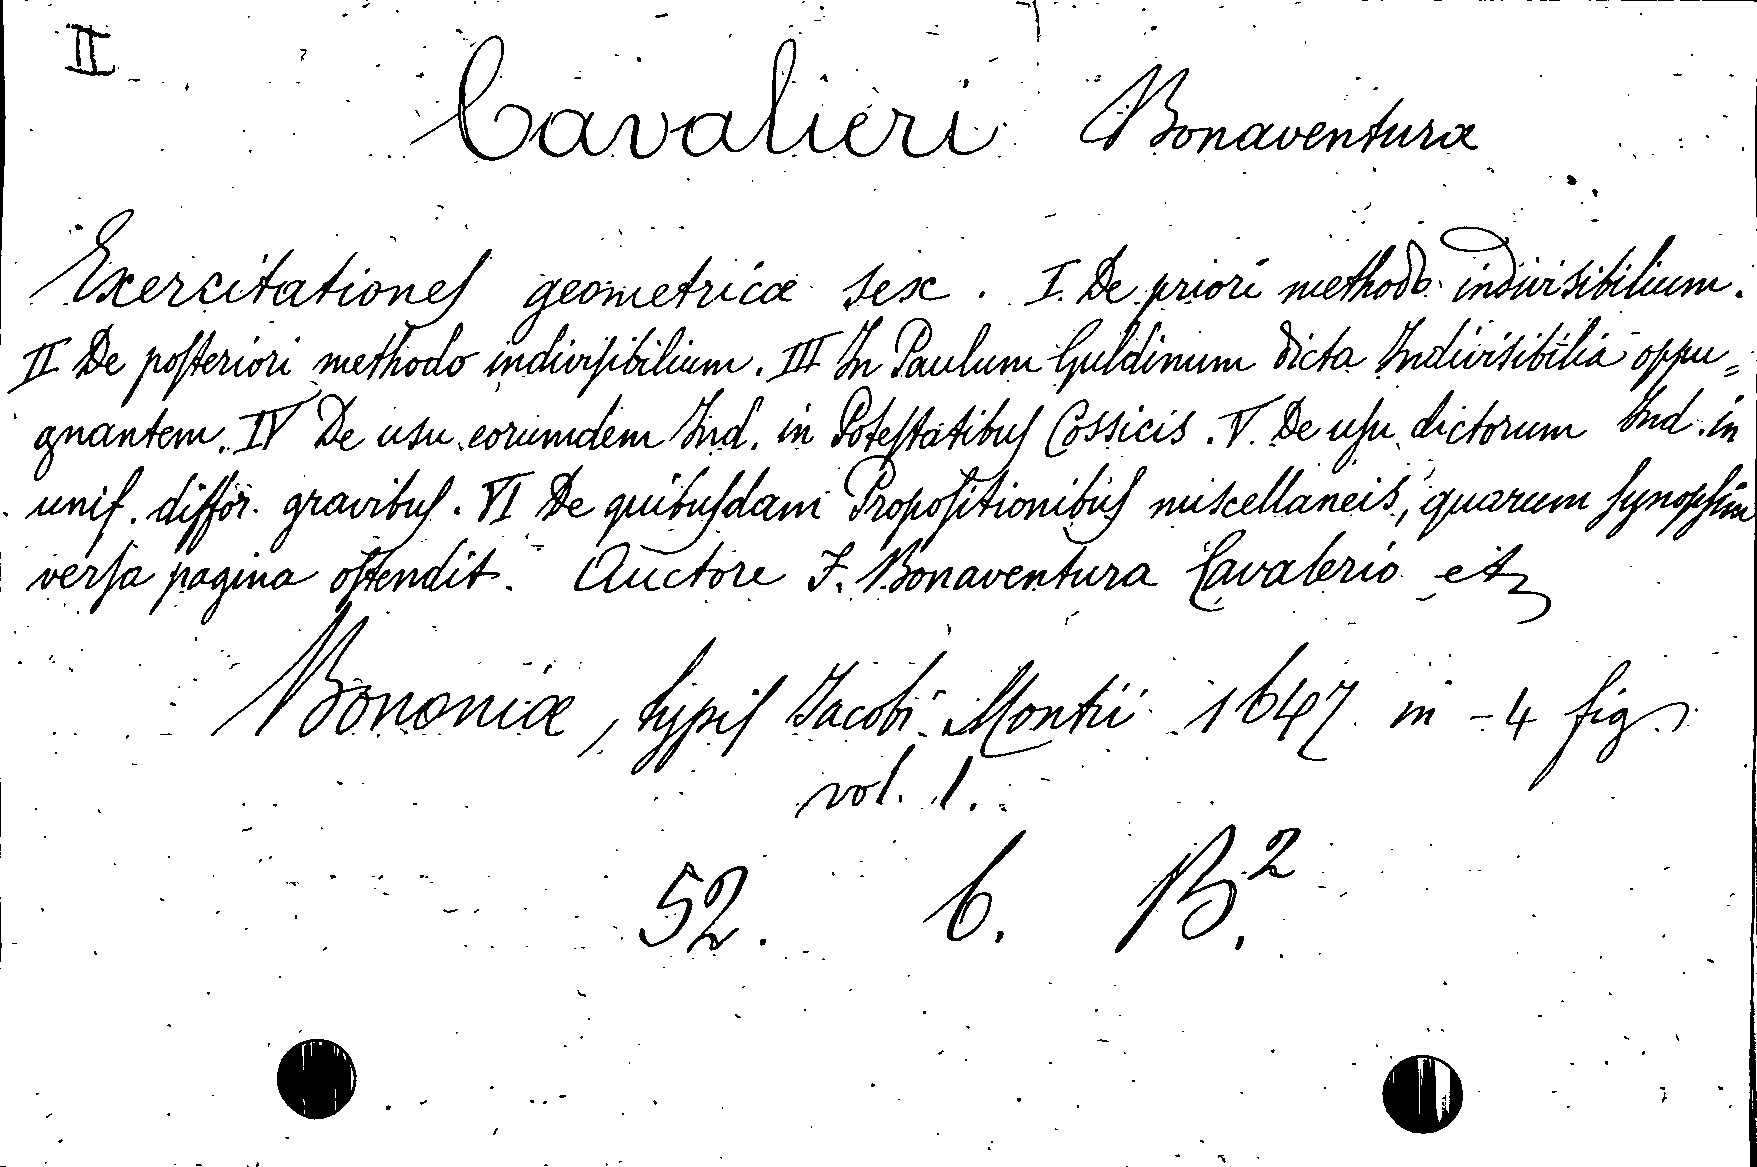 II
Cavalieri Bonaventura
Exercitationes geometricæ sex. I. De priori methodo indivisibilium.
II De poſteriori methodo indiviſibilium. III In Paulum Guldinum dicta Indivisibilia oppu=
gnantem. IV De usu eorumdem Ind. in Poteſtatibus Cossicis. V. De uſu dictorum Ind. in
unif. differ. gravibus. VI De quibuſdam Propoſitionibus miscellaneis, quarum ſynopſim
verſa pagina oſtendit. Auctore F. Bonaventura Cavalerio etc
Bononiæ, typis Jacobi Montii 1647 in-4 fig.
vol. 1.
52. 6. B².